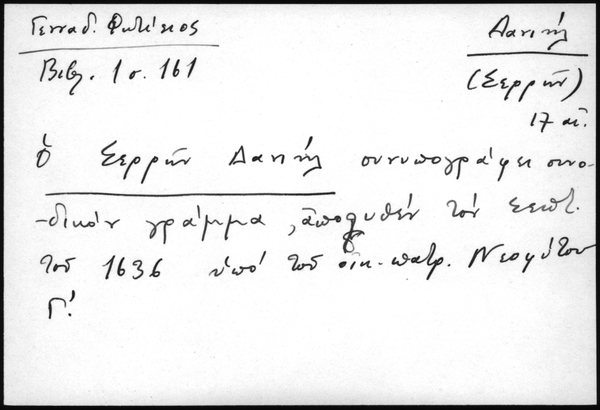 Γενναδ. Φωτίειος
Βιβλ. 1 σ. 161
Δανιήλ
(Σερρῶν)
17 αἰ.
ὁ Σερρῶν Δανιήλ συνυπογράφει συνο-
-δικόν γράμμα, ἀπολυθέν τόν Σεπτ.
τοῦ 1636 ὑπό τοῦ οἰκ. πατρ. Νεοφύτου
Γ΄.